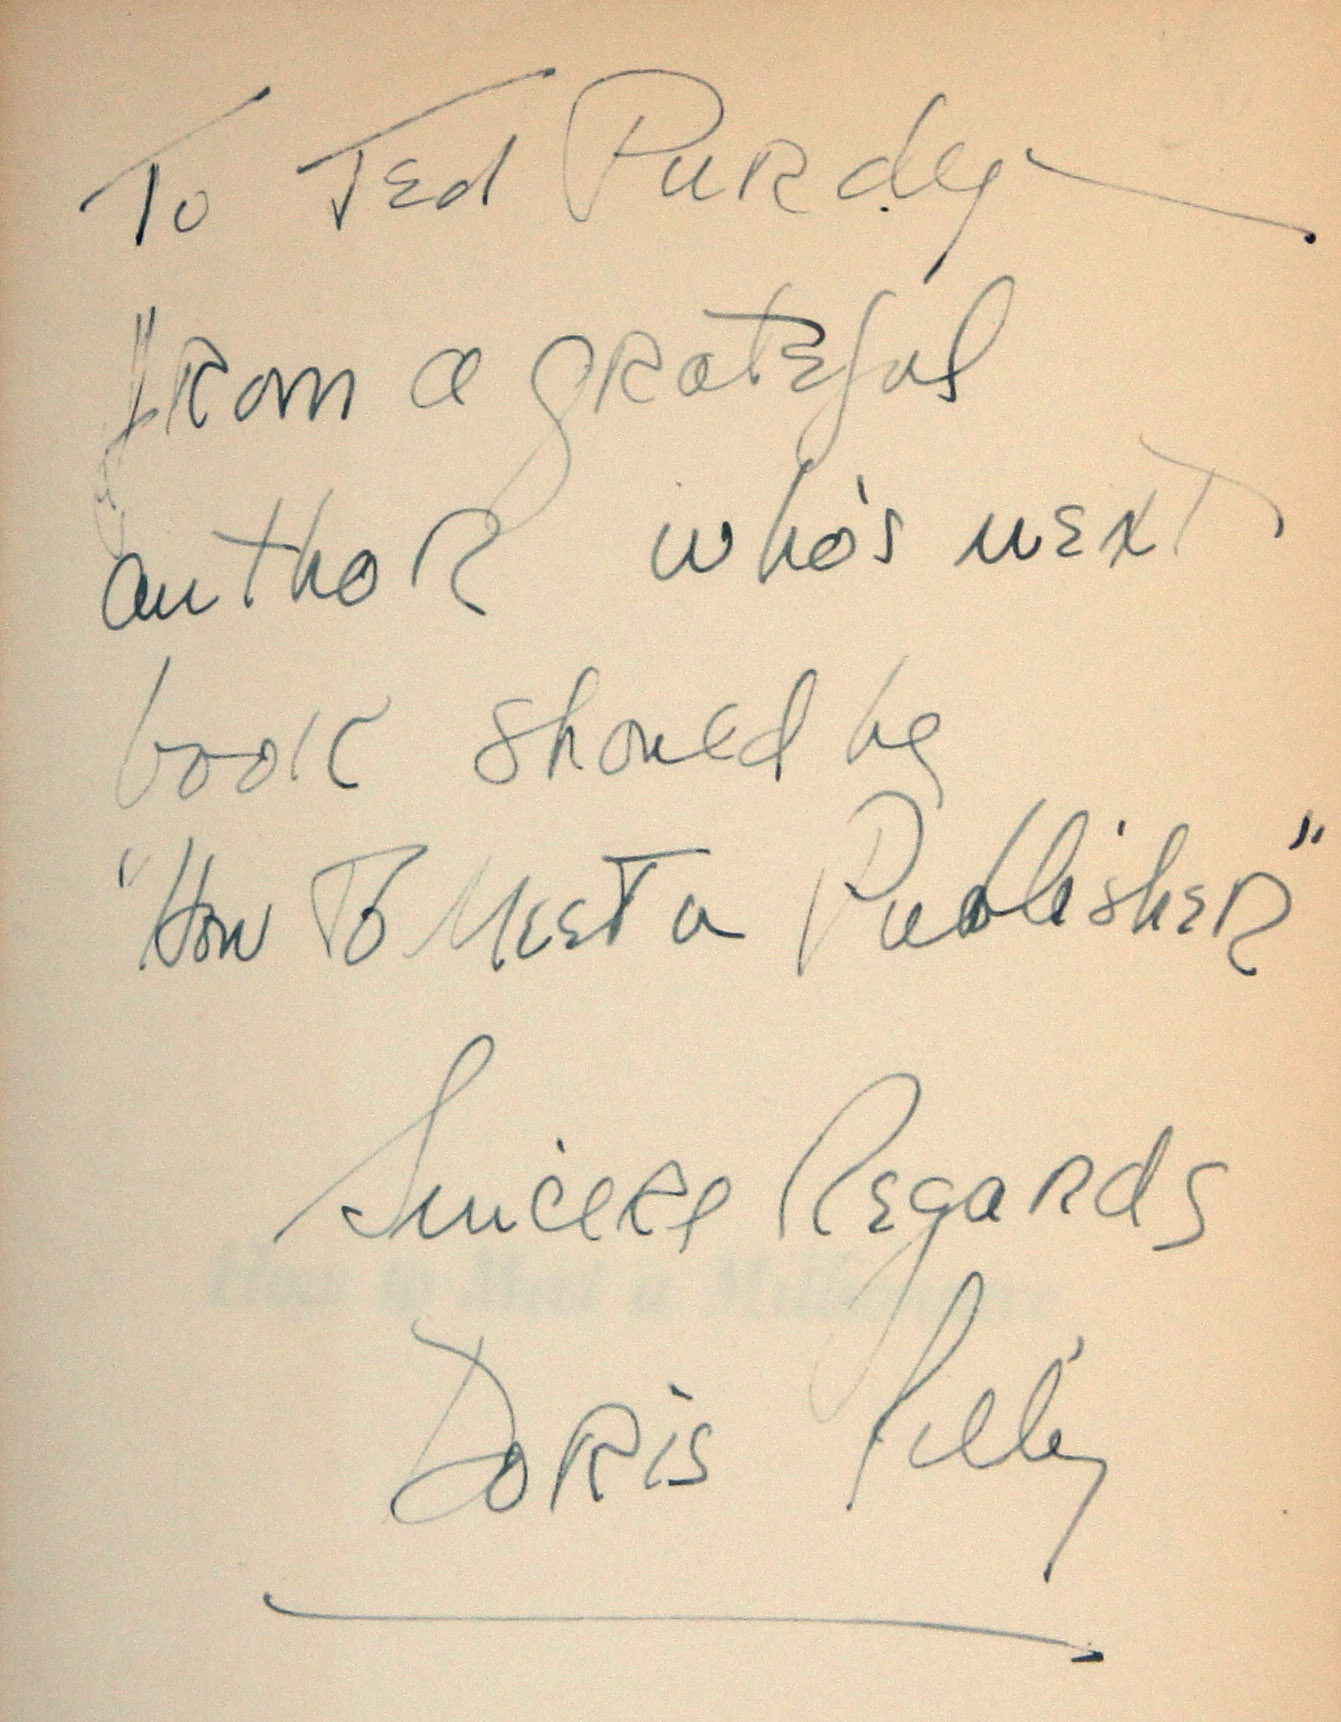 To Ted Purdy
from a grateful
author who's next
book should be
"How To Meet a Publisher"
Sincere Regards
How to Meet a Millionaire
Doris Lilly